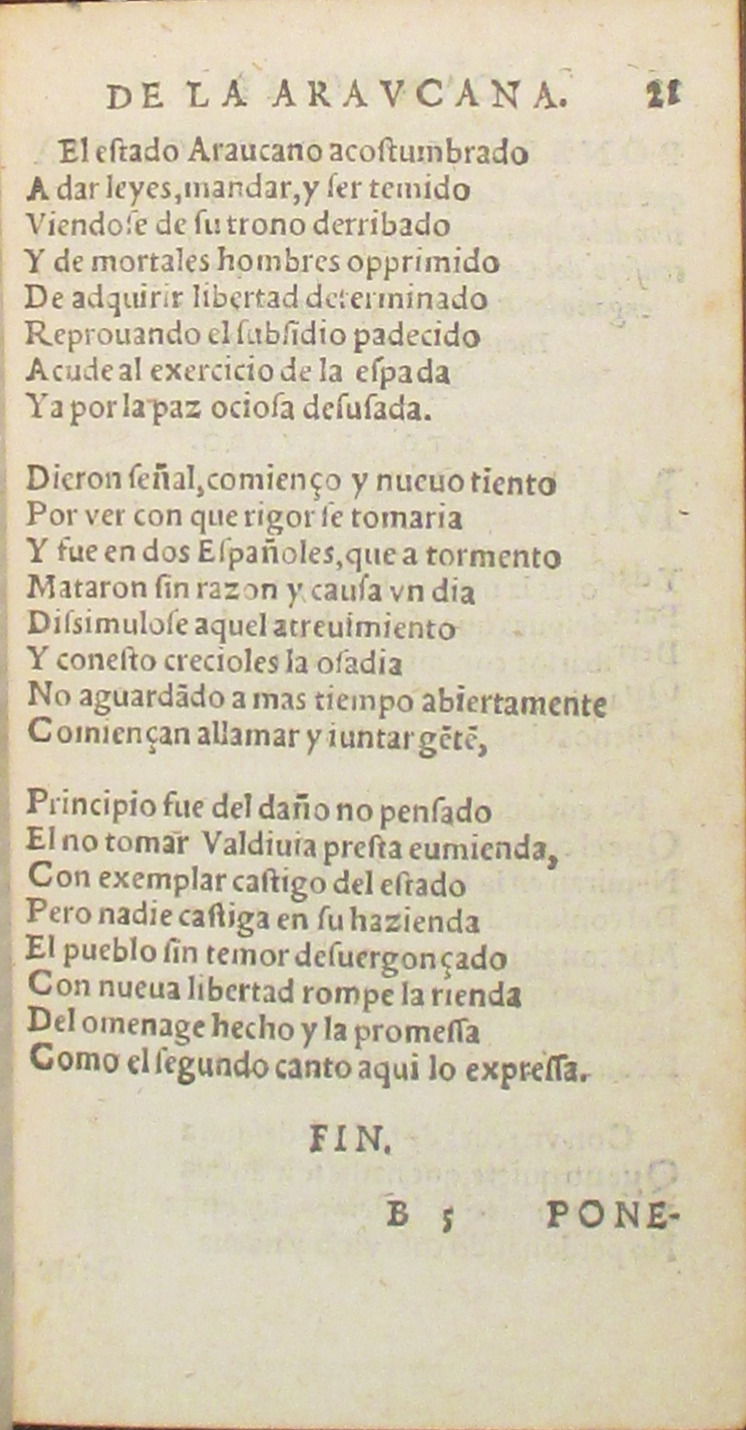 DE LA ARAVCANA. 21
El eſtado Araucano acoſtumbrado
A dar leyes,mandar,y ſer temido
Viendoſe de ſu trono derribado
Y de mortales hombres opprimido
De adquirir libertad determinado
Reprouando el ſubſidio padecido
Acude al exercicio de la eſpada
Ya por la paz ocioſa deſuſada.
Dieron ſeñal,comienço y nueuo tiento
Por ver con que rigor ſe tomaria
Y fue en dos Eſpañoles,que a tormento
Mataron ſin razon y cauſa vn dia
Diſsimuloſe aquel atreuimiento
Y coneſto crecioles la oſadia
No aguardãdo a mas tiempo abiertamente
Comiençan allamar y iuntar gẽtẽ,
Principio fue del daño no penſado
El no tomar Valdiuia preſta eumienda,
Con exemplar caſtigo del eſtado
Pero nadie caſtiga en ſu hazienda
El pueblo ſin temor deſuergonçado
Con nueua libertad rompe la rienda
Del omenage hecho y la promeſſa
Como el ſegundo canto aqui lo expreſſa.
FIN.
B 5 PONE-